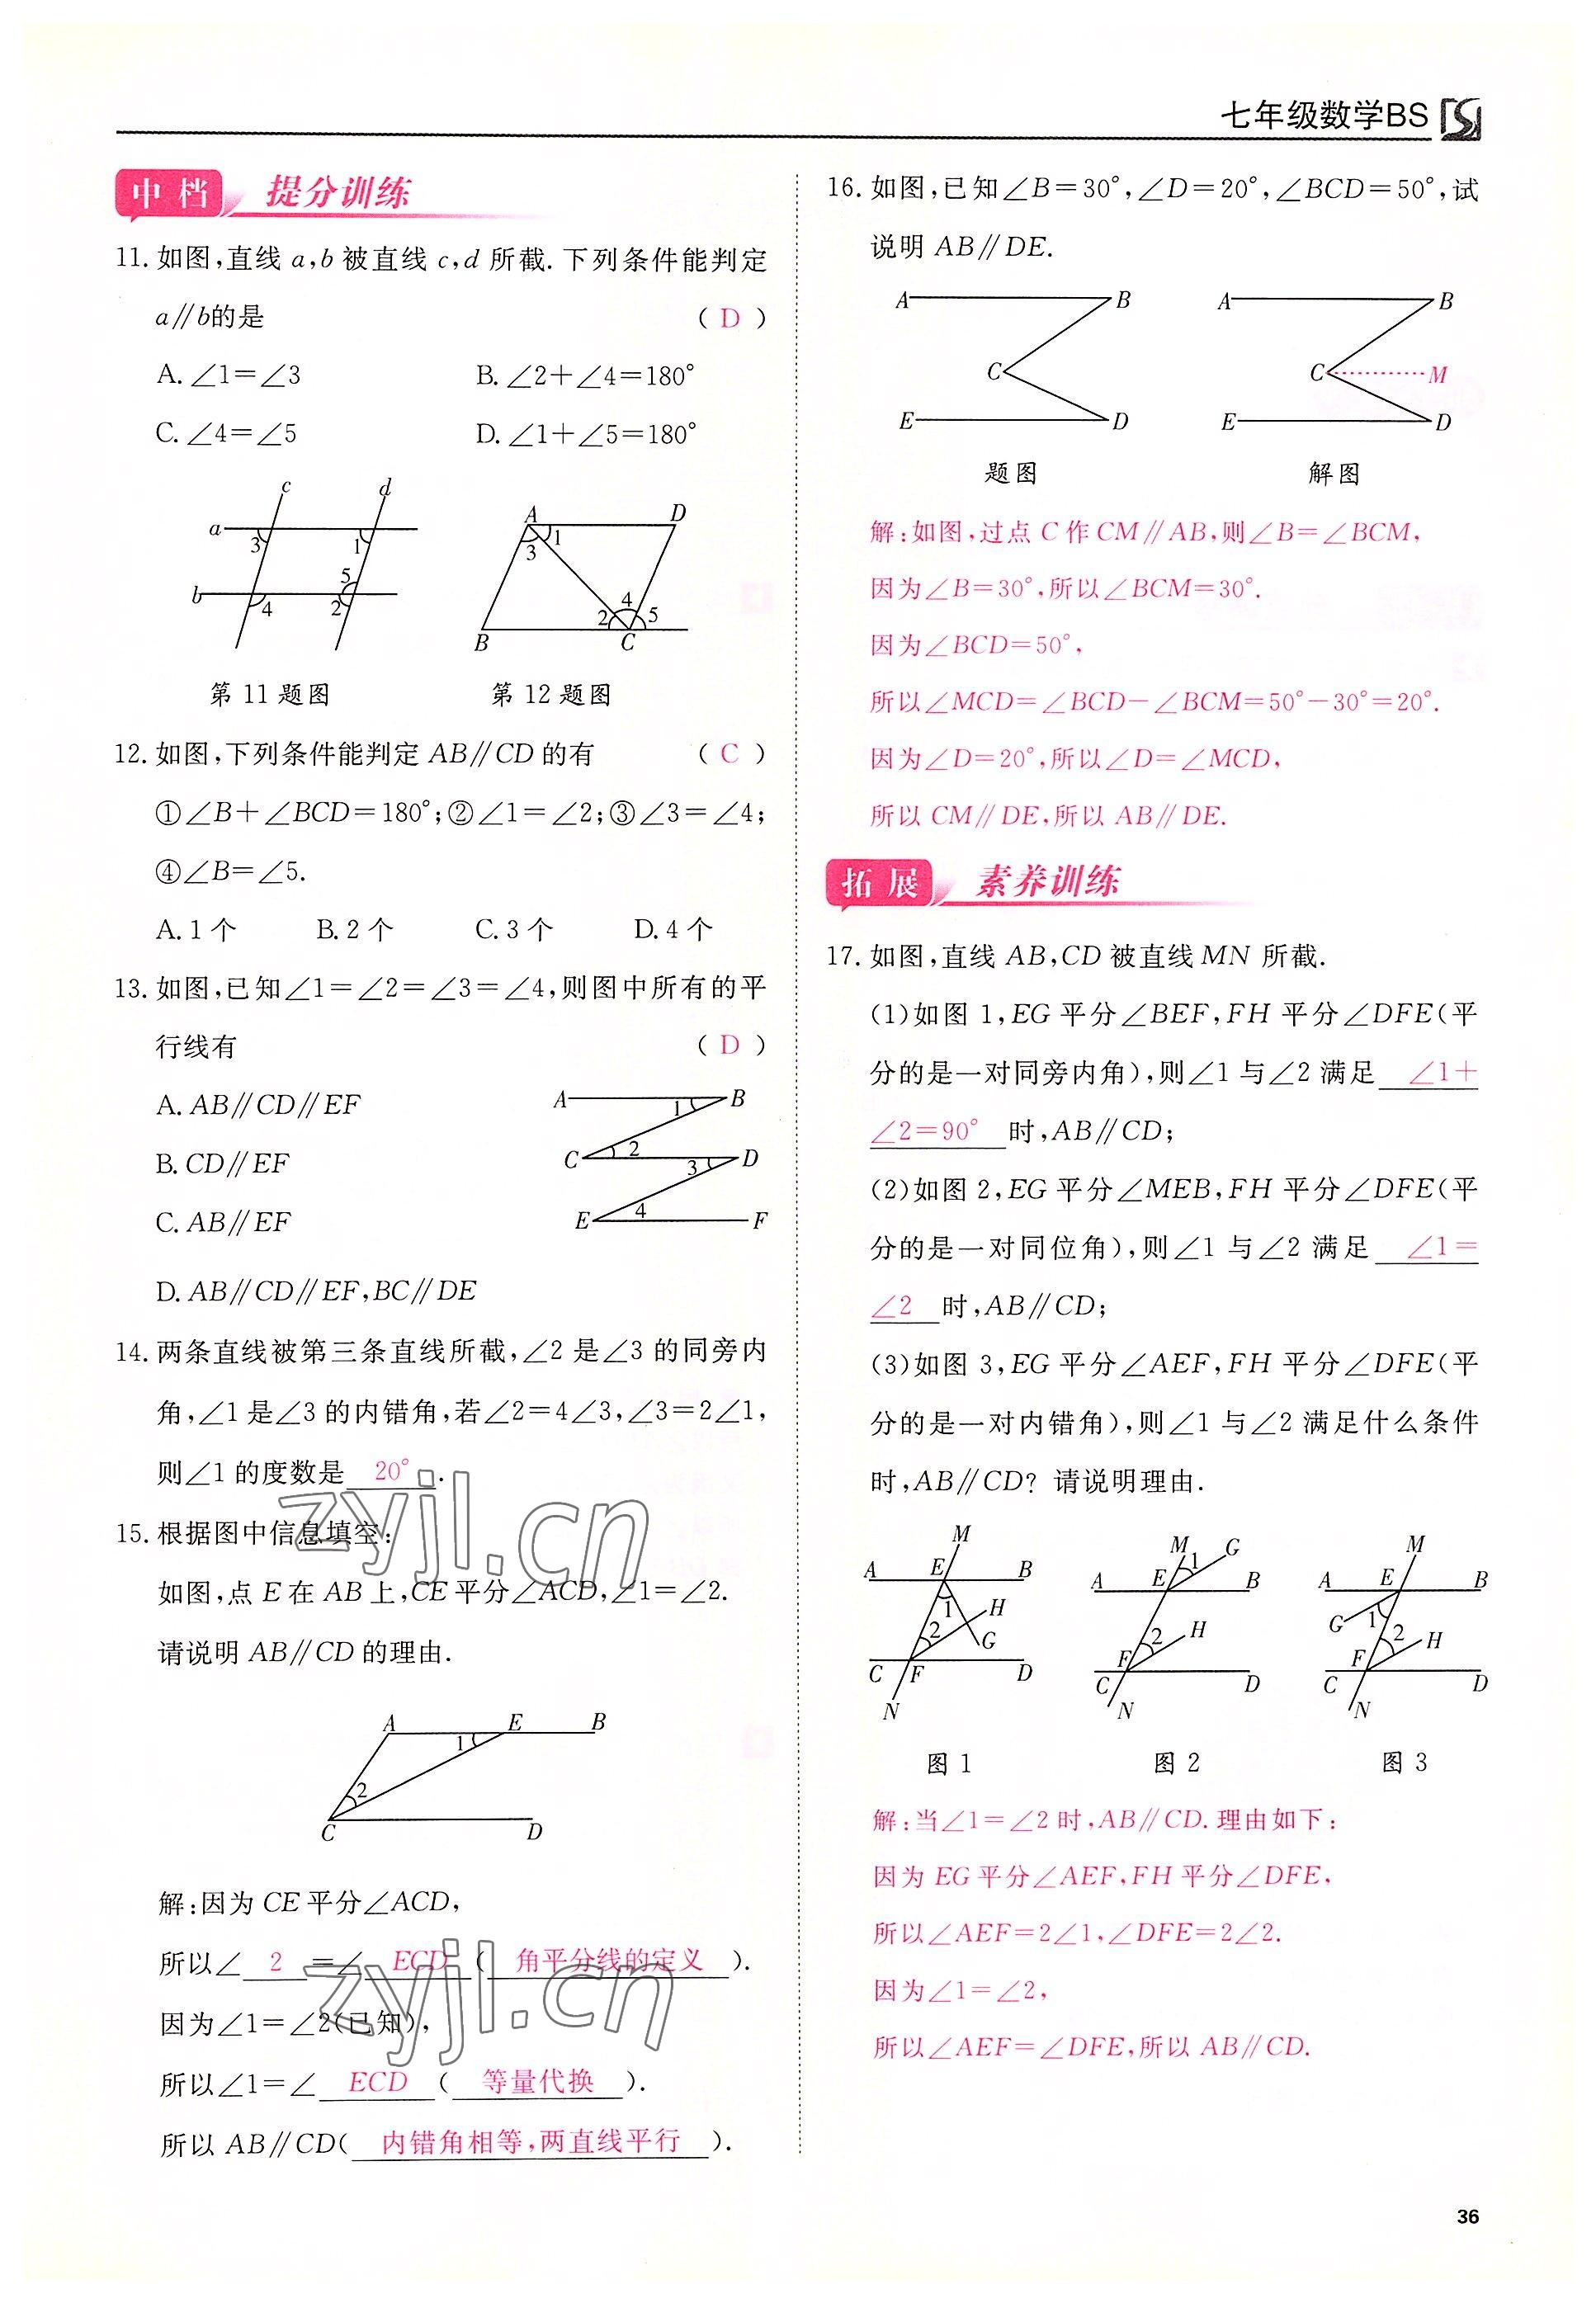 七年级数学BS
中档 提分训练
11. 如图,直线 a,b 被直线 c,d 所截. 下列条件能判定
a∥b的是 ( D )
A. ∠1=∠3 B. ∠2+∠4=180°
C. ∠4=∠5 D. ∠1+∠5=180°
c d
a 3 1
5
b 4 2
A D
3 1
4
2 5
B C
第 11 题图 第 12 题图
12. 如图,下列条件能判定 AB∥CD 的有 ( C )
①∠B+∠BCD=180°;②∠1=∠2;③∠3=∠4;
④∠B=∠5.
A. 1 个 B. 2 个 C. 3 个 D. 4 个
13. 如图,已知∠1=∠2=∠3=∠4,则图中所有的平
行线有 ( D )
A. AB∥CD∥EF
B. CD∥EF
C. AB∥EF
D. AB∥CD∥EF,BC∥DE
A 1 B
C 2 3 D
E 4 F
14. 两条直线被第三条直线所截,∠2 是∠3 的同旁内
角,∠1 是∠3 的内错角,若∠2=4∠3,∠3=2∠1,
则∠1 的度数是 20° .
15. 根据图中信息填空:
如图,点 E 在 AB 上,CE 平分∠ACD,∠1=∠2.
请说明 AB∥CD 的理由.
A E B
1
2
C D
解:因为 CE 平分∠ACD,
所以∠ 2 =∠ ECD ( 角平分线的定义 ).
因为∠1=∠2(已知),
所以∠1=∠ ECD ( 等量代换 ).
所以 AB∥CD( 内错角相等,两直线平行 ).
zyjl.cn
zyjl.cn
16. 如图,已知∠B=30°,∠D=20°,∠BCD=50°,试
说明 AB∥DE.
A B A B
C C M
E D E D
题图 解图
解:如图,过点 C 作 CM∥AB,则∠B=∠BCM,
因为∠B=30°,所以∠BCM=30°.
因为∠BCD=50°,
所以∠MCD=∠BCD-∠BCM=50°-30°=20°.
因为∠D=20°,所以∠D=∠MCD,
所以 CM∥DE,所以 AB∥DE.
拓展 素养训练
17. 如图,直线 AB,CD 被直线 MN 所截.
(1)如图 1,EG 平分∠BEF,FH 平分∠DFE(平
分的是一对同旁内角),则∠1 与∠2 满足 ∠1+
∠2=90° 时,AB∥CD;
(2)如图 2,EG 平分∠MEB,FH 平分∠DFE(平
分的是一对同位角),则∠1 与∠2 满足 ∠1=
∠2 时,AB∥CD;
(3)如图 3,EG 平分∠AEF,FH 平分∠DFE(平
分的是一对内错角),则∠1 与∠2 满足什么条件
时,AB∥CD? 请说明理由.
M M G M
A E B A E 1 B A E B
1 H G 1
2 G 2 H 2 H
C F D C F D C F D
N N N
图 1 图 2 图 3
解:当∠1=∠2 时,AB∥CD. 理由如下:
因为 EG 平分∠AEF,FH 平分∠DFE,
所以∠AEF=2∠1,∠DFE=2∠2.
因为∠1=∠2,
所以∠AEF=∠DFE,所以 AB∥CD.
36